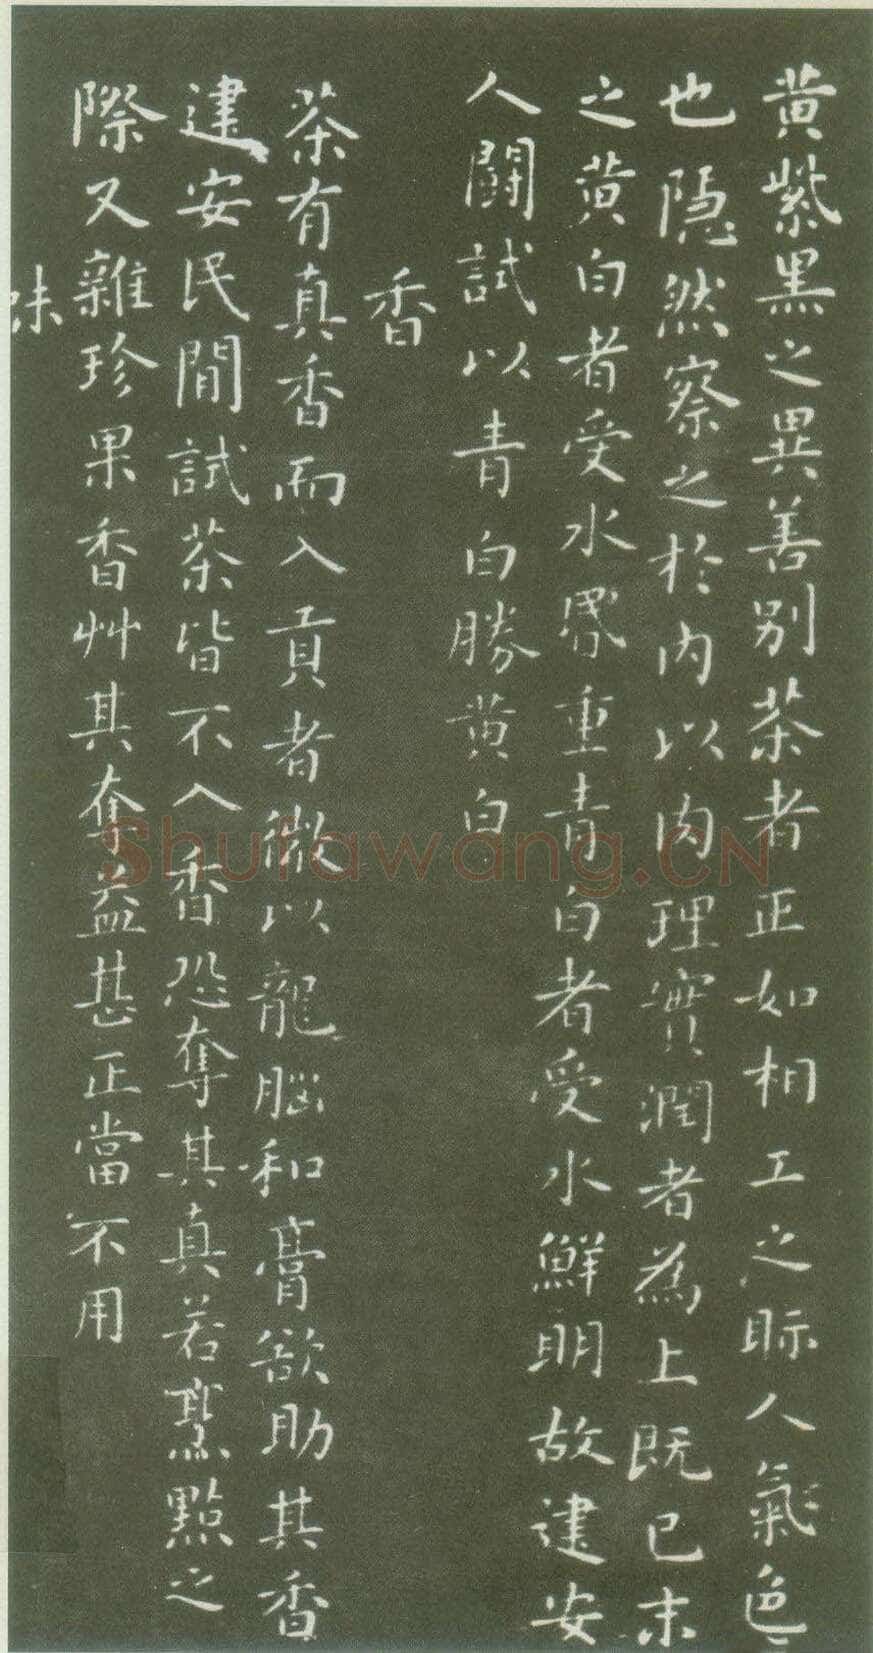 黄紫黑之異善别茶者正如相工之眎人氣色
也隱然察之於内以肉理實潤者為上既已末
之黄白者受水昬重青白者受水鮮明故建安
人鬭試以青白勝黄白
香
茶有真香而入貢者微以龍腦和膏欲助其香
建安民間試茶皆不入香恐奪其真若烹點之
際又雜珍果香艸其奪益甚正當不用
味
Shufawang.CN